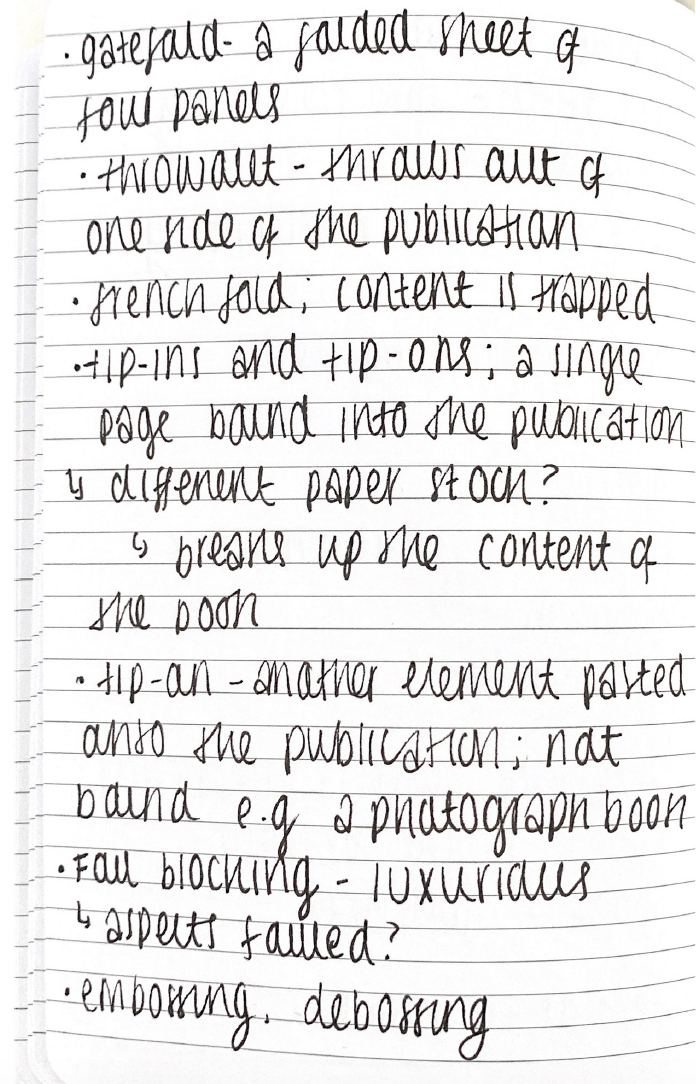 · gatefold - a folded sheet of
four panels
· throwout - throws out of
one side of the publication
· french fold; content is trapped
· tip-ins and tip-ons; a single
page bound into the publication
↳ different paper stock?
↳ breaks up the content of
the book
· tip-on - another element pasted
onto the publication; not
bound e.g a photograph book
· Foil blocking - luxurious
↳ aspects foiled?
· embossing, debossing